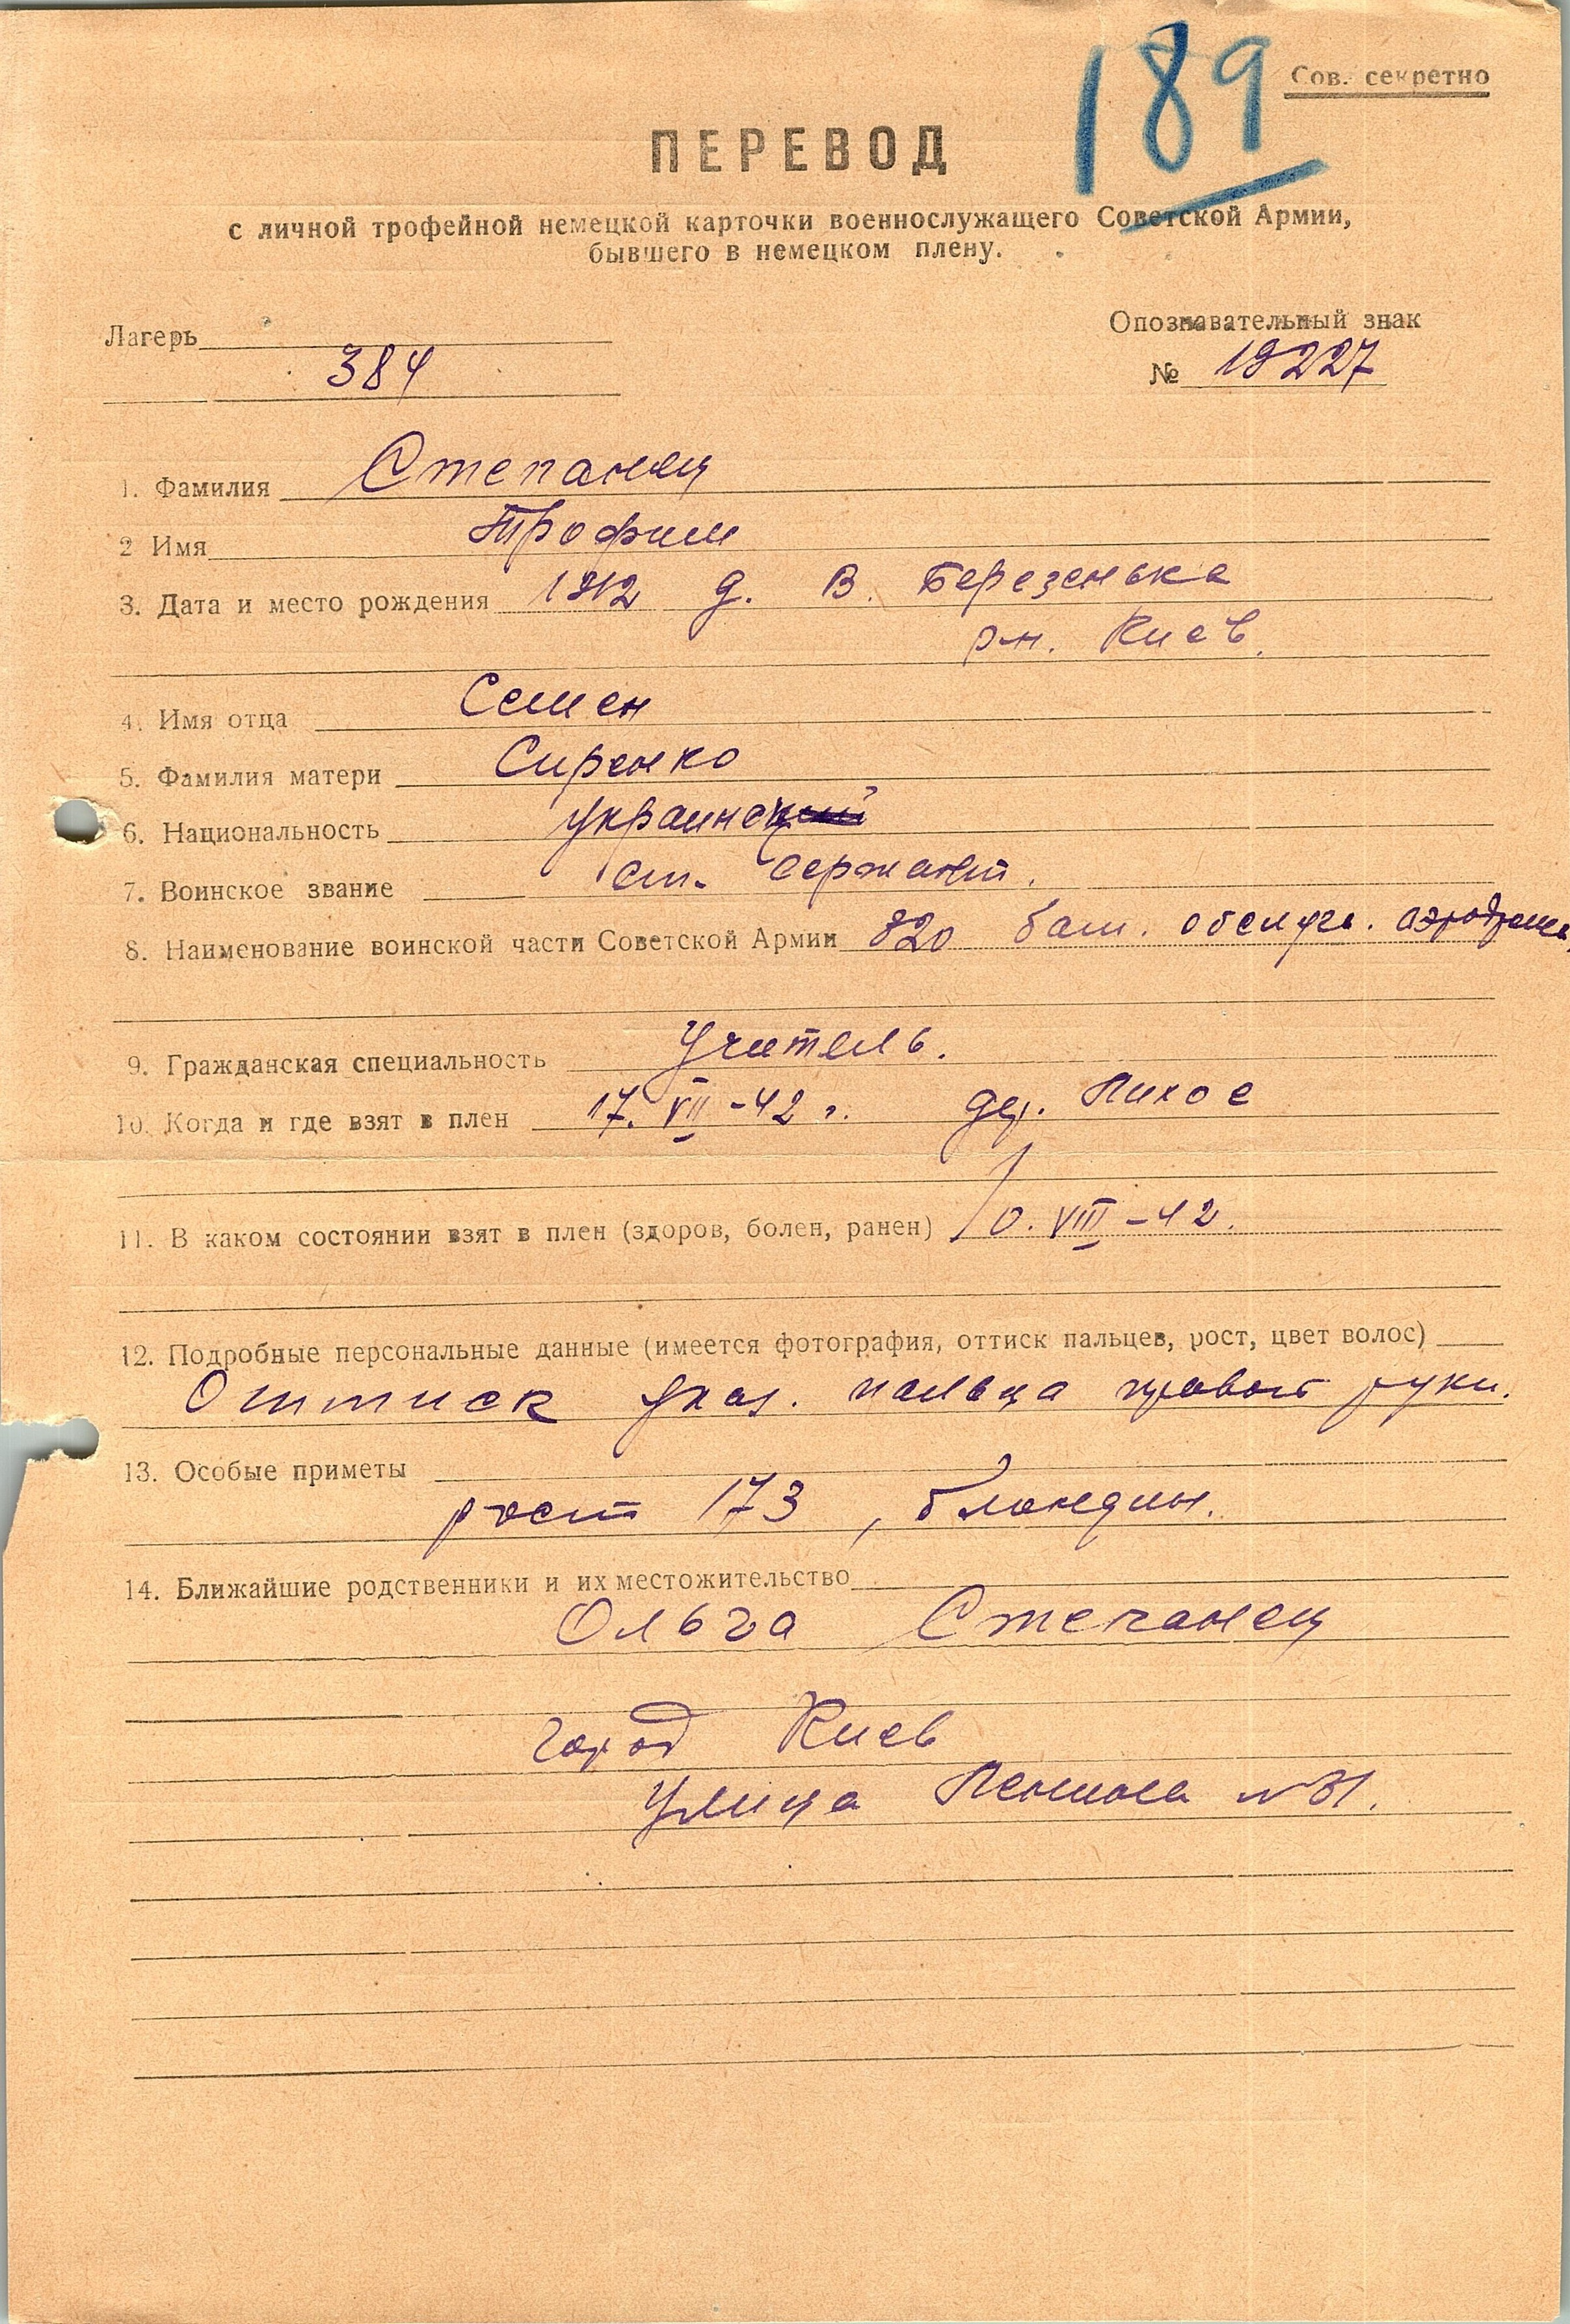 189
Сов. секретно
ПЕРЕВОД
с личной трофейной немецкой карточки военнослужащего Советской Армии,
бывшего в немецком плену.
Лагерь
384
Опознавательный знак
№ 19227
1. Фамилия Степанец
2 Имя Трофим
3. Дата и место рождения 1912 д. В. Березенька
рн. Киев.
4. Имя отца Семен
5. Фамилия матери Сиренко
6. Национальность украинец
7. Воинское звание ст. сержант.
8. Наименование воинской части Советской Армии 820 бат. обслуж. аэродрома
9. Гражданская специальность Учитель.
10. Когда и где взят в плен 17. VII-42 г. дер. Лихое
11. В каком состоянии взят в плен (здоров, болен, ранен) /0. VIII-42.
12. Подробные персональные данные (имеется фотография, оттиск пальцев, рост, цвет волос)
Оттиск указ. пальца правой руки.
13. Особые приметы
рост 173, блондин.
14. Ближайшие родственники и их местожительство
Ольга Степанец
город Киев
Улица Ленина № 31.